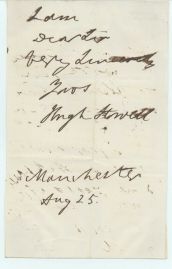 I am
Dear Sir
Very Sincerely
Yours
Hugh Stowell
Manchester
Aug 25.